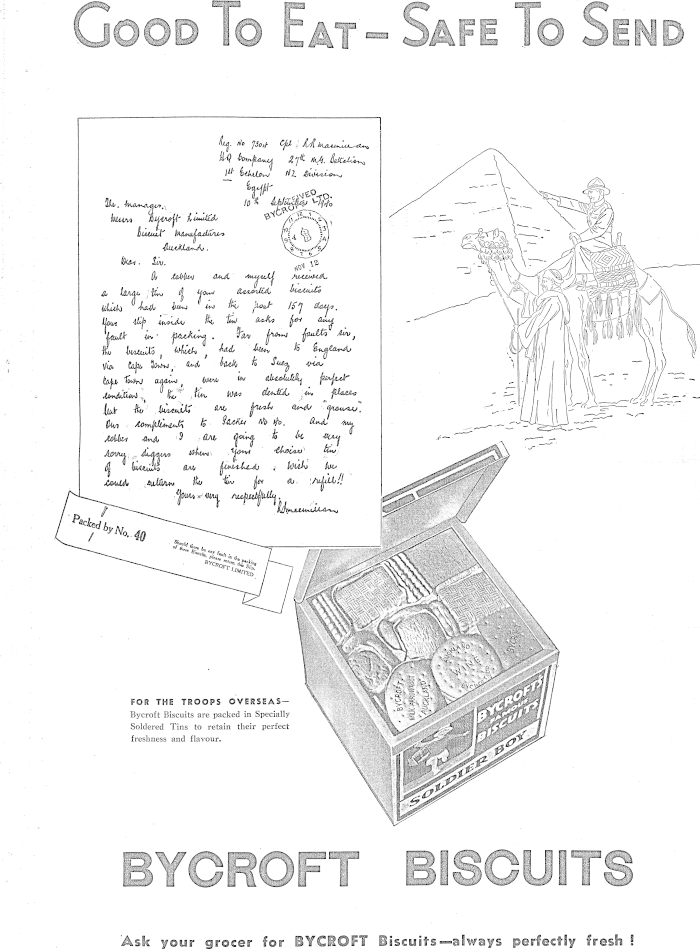 GOOD TO EAT – SAFE TO SEND
Reg. No 7304 Cpl. R R Macmillan
HQ Company 27th M.G. Battalion
1st Echelon NZ Division
Egypt
10th September 1940
RECEIVED
BYCROFT LTD.
NOV 12
The Manager,
Messrs Bycroft Limited
Biscuit Manufacturers
Auckland.
Dear Sir,
A cobber and myself received
a large tin of your assorted biscuits
which had been in the post 157 days.
Your slip inside the tin asks for any
fault in packing. Far from faults sir,
the biscuits, which, had been to England
via Cape Town, and back to Suez via
Cape Town again, were in absolutely perfect
condition, the tin was dented in places
but the biscuits are fresh and "grouse".
Our compliments to Packer No 40. And my
cobber and I are going to be very
sorry diggers when your choice tin
of biscuits are finished. Wish we
could return the tin for a refill!!
Yours very respectfully,
R Macmillan
Packed by No. 40
Should there be any fault in the packing
of these Biscuits, please return this Slip.
BYCROFT LIMITED
BYCROFT
AUCKLAND
WINE
BYCROFT'S
BISCUITS
SOLDIER BOY
FOR THE TROOPS OVERSEAS—
Bycroft Biscuits are packed in Specially
Soldered Tins to retain their perfect
freshness and flavour.
BYCROFT BISCUITS
Ask your grocer for BYCROFT Biscuits—always perfectly fresh !